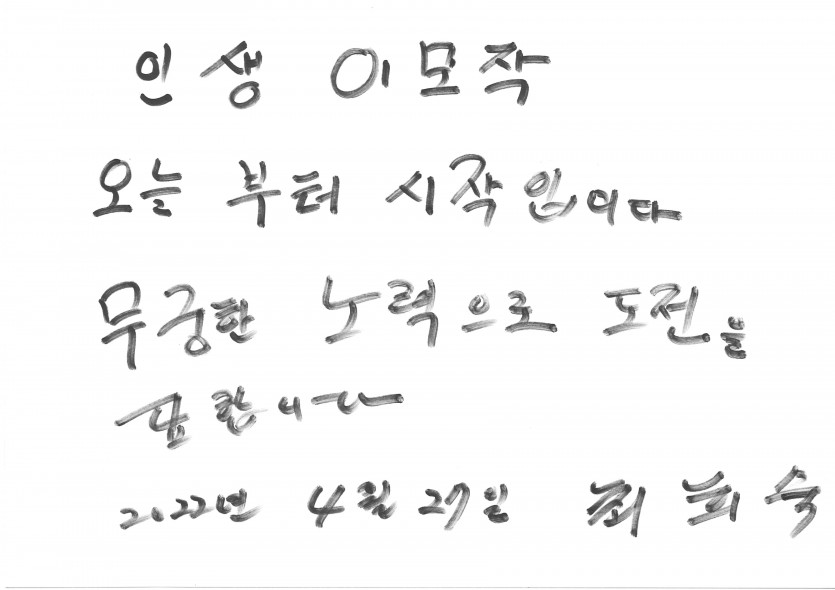 인생 이모작
오늘 부터 시작입니다
무궁한 노력으로 도전을
표합니다
2022년 4월 27일 최희숙